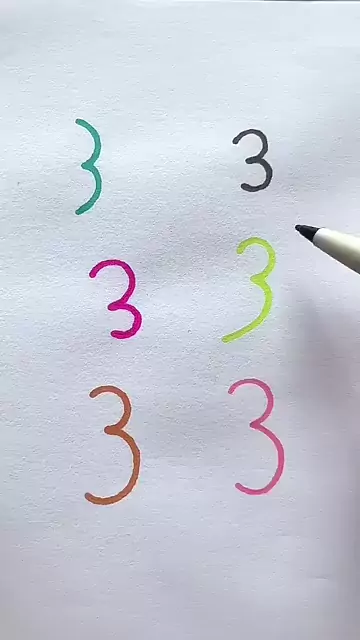 3 3
3 3
3 3